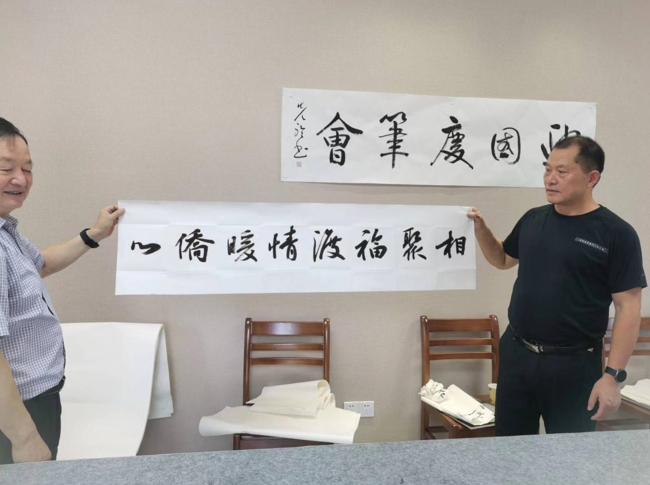 國慶筆會
相聚福渡情暖僑心